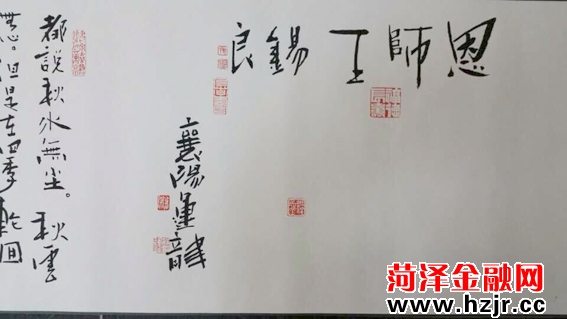 恩師王錫良
襄陽董龍
都說秋水無尘。秋雲
無心。但是在四季輪回
菏泽金融网
www.hzjr.cc